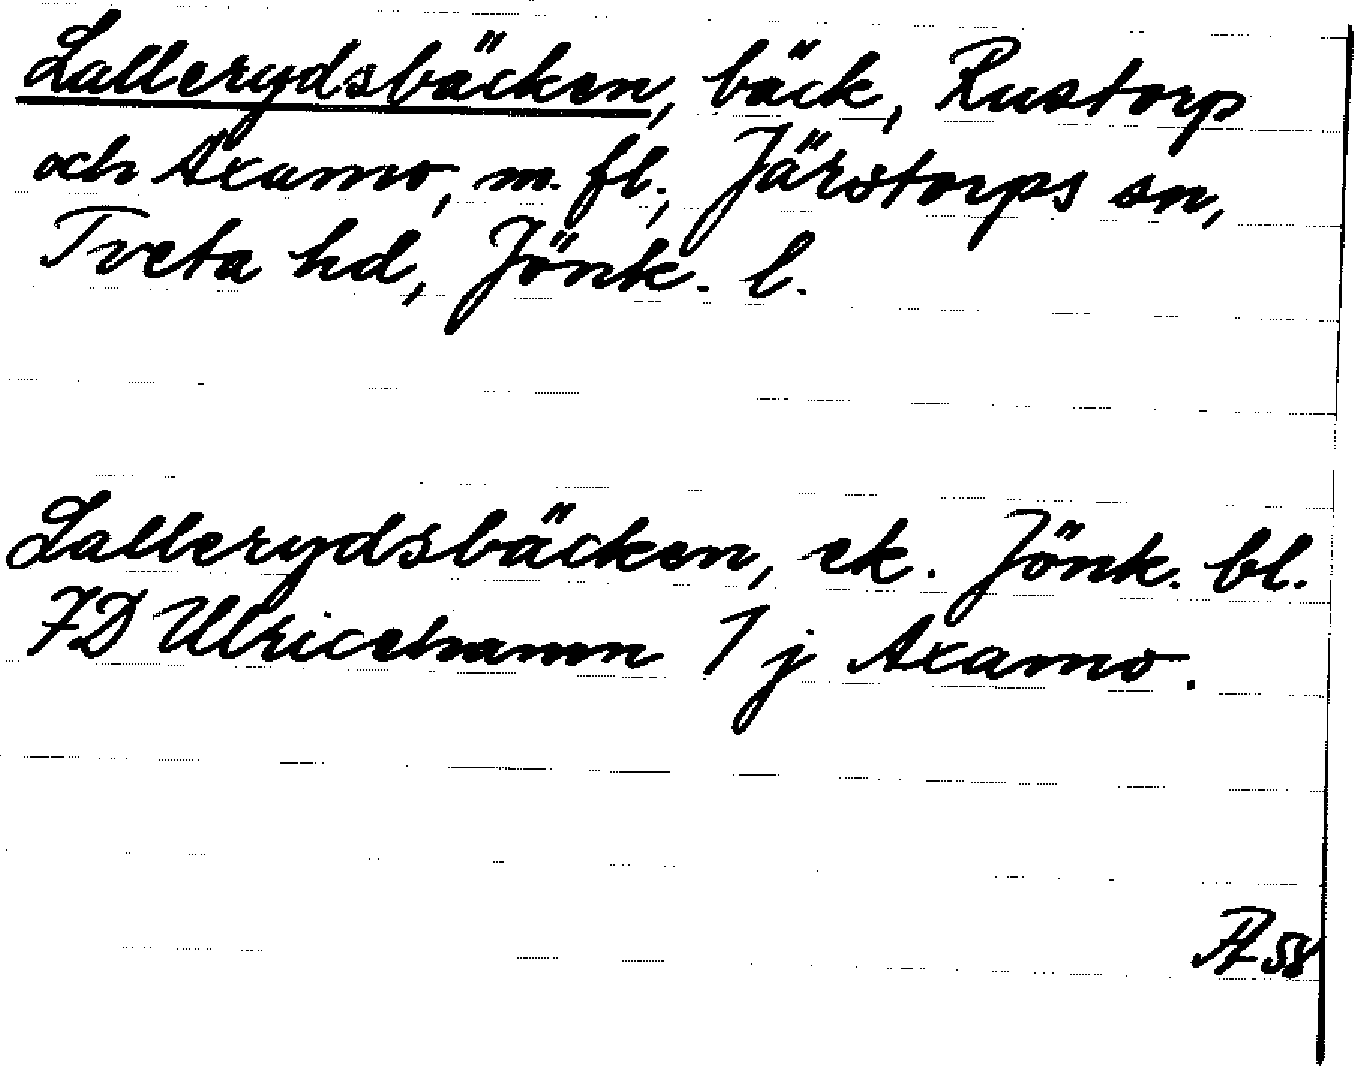 Lallerydsbäcken, bäck, Rustorp
och Axamo, m. fl., Järstorps sn,
Tveta hd, Jönk. l.
Lallerydsbäcken, ek. Jönk. bl.
7D Ulricehamn 1 j Axamo.
58